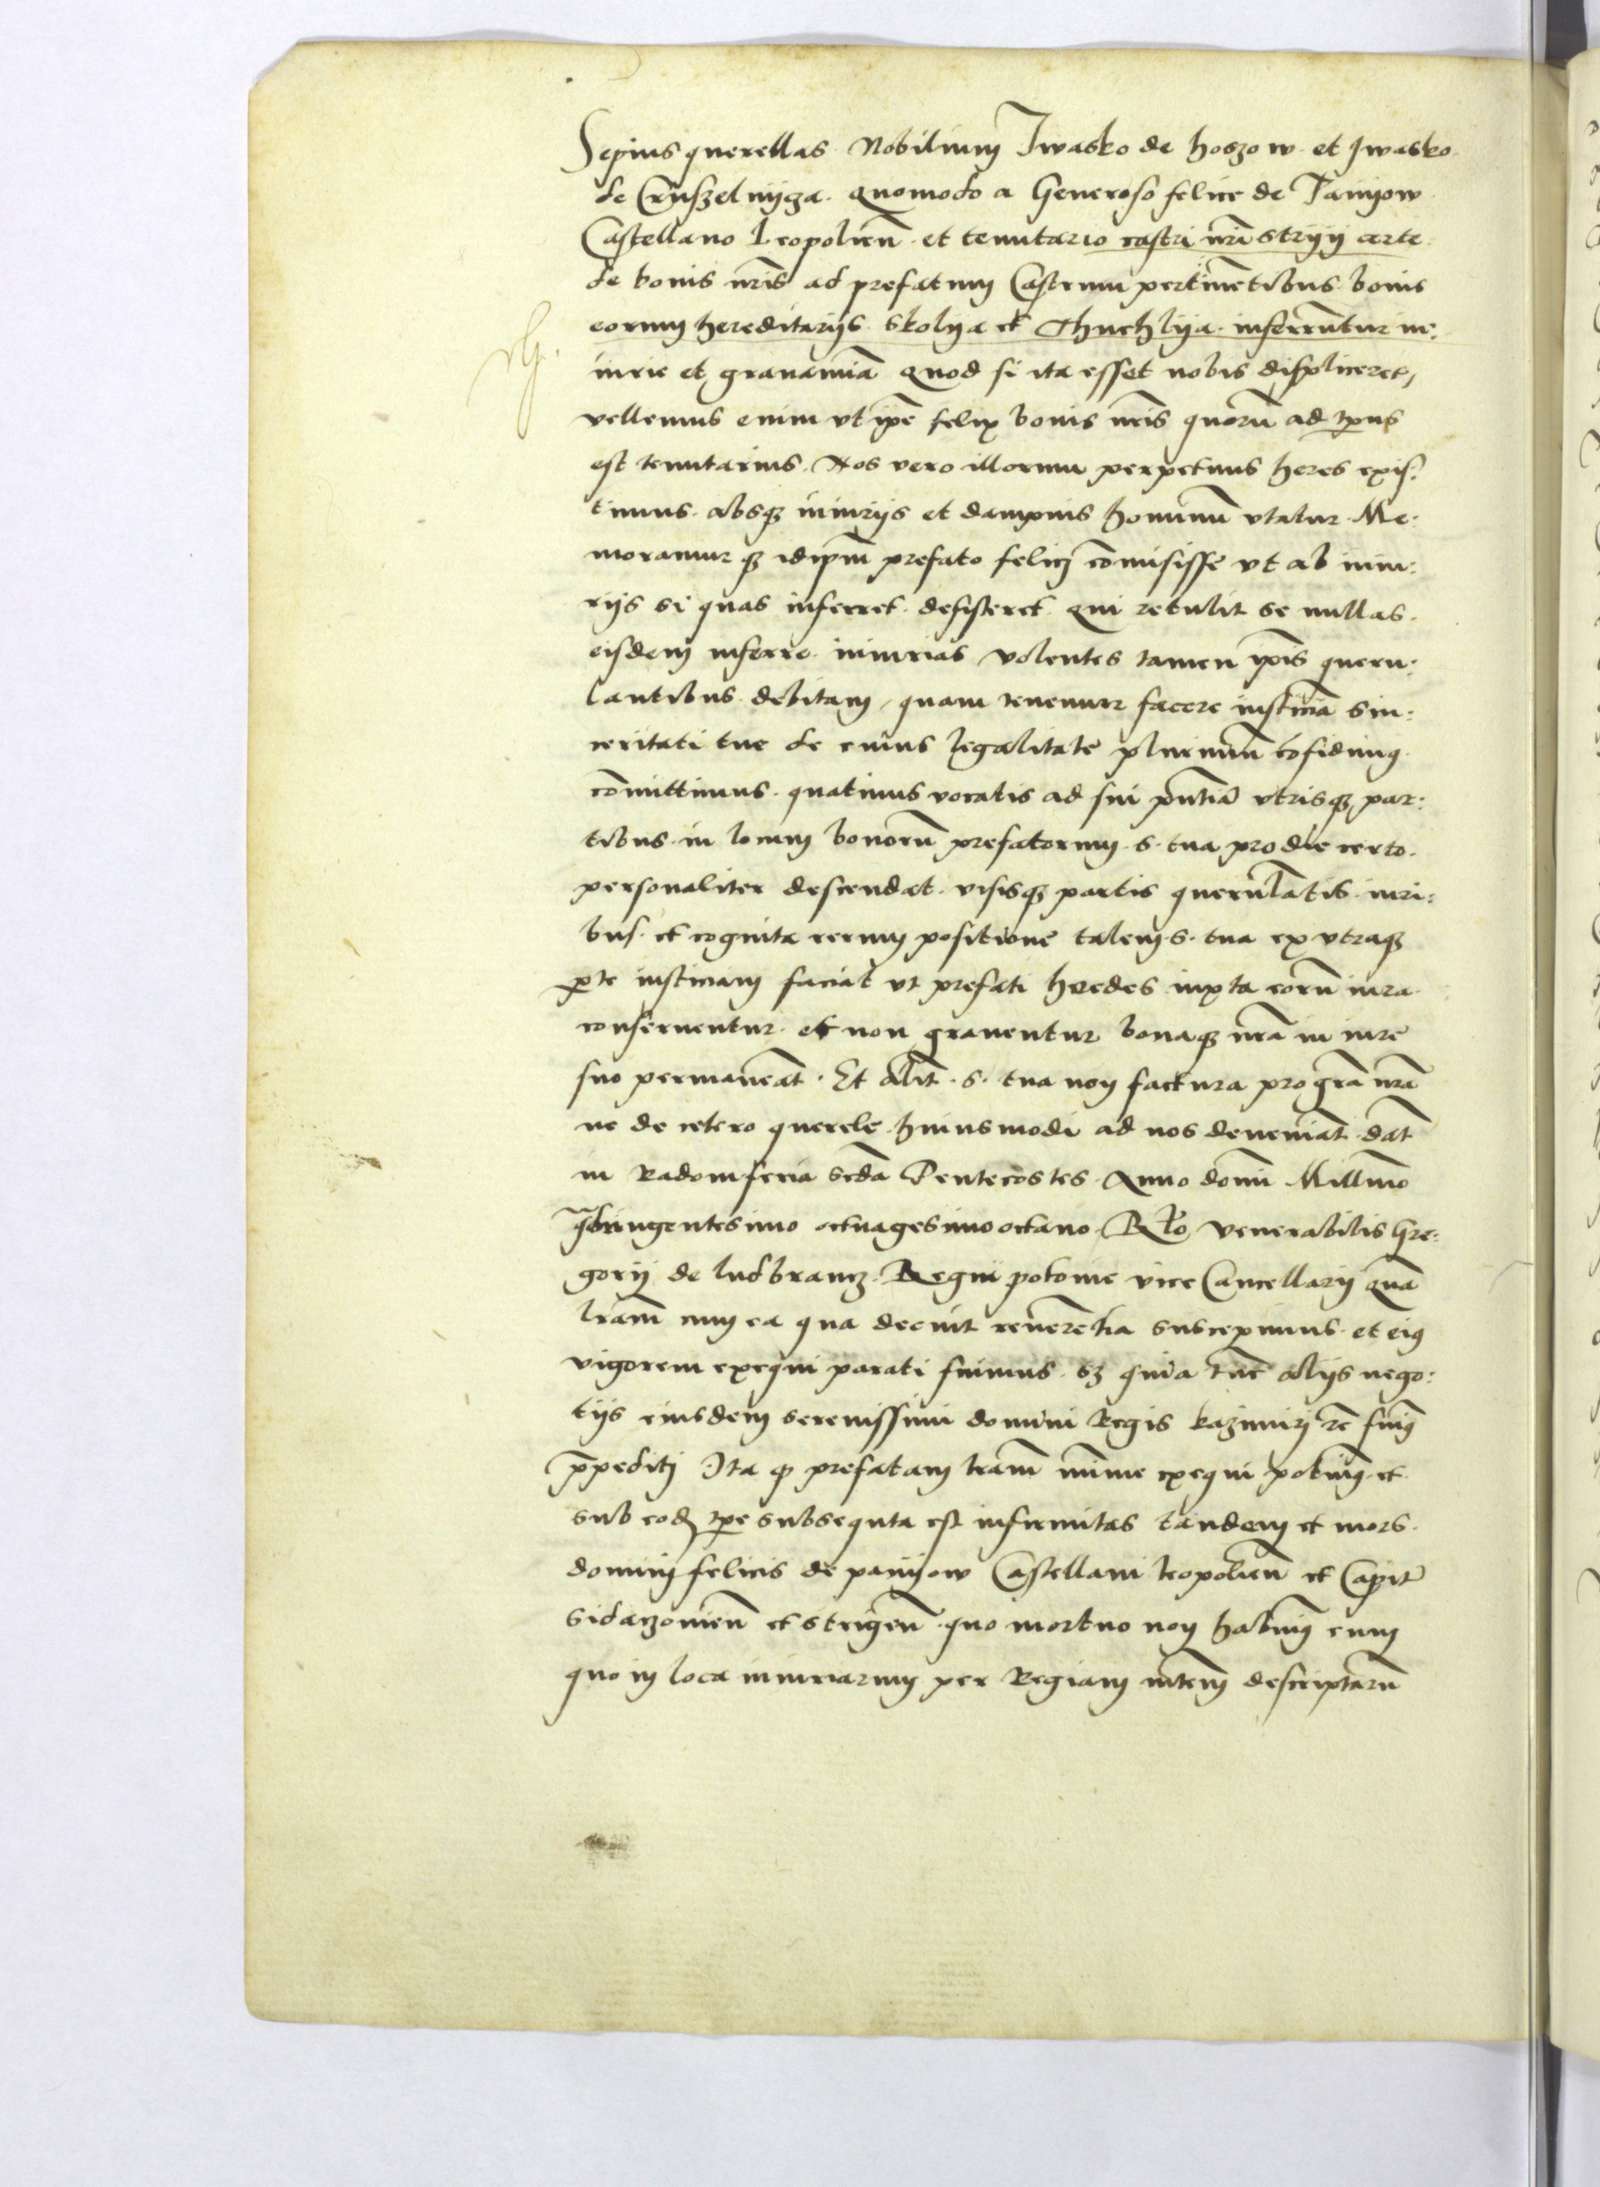 Sepius querellas Nobilium Iwasko de hoszow et Iwasko
de Cruszelnyga. quomodo a Generoso felice de Panyow
Castellano Leopolien̄ et tenutario castri nr̄i stryy certe
de bonis nr̄is ad prefatum Castrum pertinētibus bonis
eorum hereditarijs skolya et Thuchlya inferruntur in:
iurie et grauamīa quod si ita esset nobis displiceret,
vellemus enim vt ip̄e felix bonis nr̄is quorū ad tp̄us
est tenutarius. Nos vero illorum perpetuus heres exis:
timus absq; iniurijs et dampnis hominū vtatur Me:
moramur q; idip̄m prefato felici cōmisisse vt ab iniu:
rijs si quas inferret desisteret qui retulit se nullas
eisdem inferre iniurias volentes tamen ip̄is queru:
lantibus debitam, quam tenemur facere iusticiā sin:
ceritati tue de cuius legalitate plurimū cōfidimus
cōmittimus. quatinus vocatis ad sui pn̄tiā vtrisq; par:
tibus in locum bonorū prefatorum s. tua pro die certo.
personaliter descendat. visisq; partis querulātis iuri:
bus. et cognita rerum positione talem s. tua ex vtraq;
p̄te iusticiam faciat vt prefati heredes iuxta eorū iura
conseruentur et non grauentur bonaq; nr̄a in iure
suo permaneāt. Et alit̄ s. tua non factura pro gr̄a nr̄a
ne de cetero querele huiusmodi ad nos deueniāt dat̄
in Radom feria sc̄da Pentecostes Anno domī Millīmo
Quingentesimo octuagesimo octauo Rt̄o venerabilis Gre:
gorij de ludbrancz Regni polonie vice Cancellarij quā
lr̄am cum ea qua decuit reuerētia suscepimus et eius
vigorem exequi parati fuimus sz quia tūc alijs nego:
tijs eiusdem serenissimi domini Regis kazimiri fuim9
p̄pediti Ita q prefatam lr̄am minime exequi potuim9 et
sub eod tp̄e subsequta est infirmitas tandem et mors
domini felicis de panyow Castellani leopolien̄ et Capit̄
sidaczouien̄ et strigen̄ quo mortuo non habuim9 cum
quo in loca iniuriarum per Regiam mt̄em descriptarū